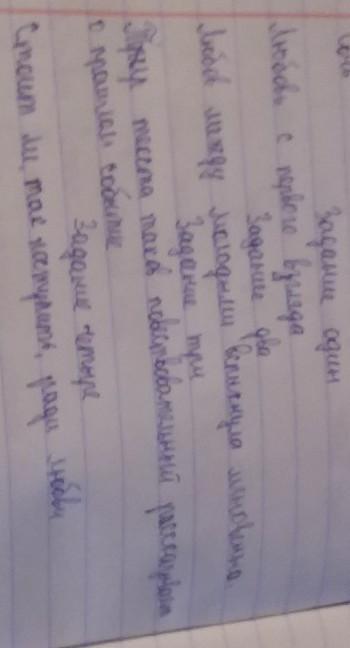 Задание один
Любовь с первого взгляда
Задание два
Любов между молодыми вспыхнула мгновенно.
Задание три
текста таков повествовательный рассказывает
о прошлам событие
Задание четыре
Стоит ли, так поступить, ради любви